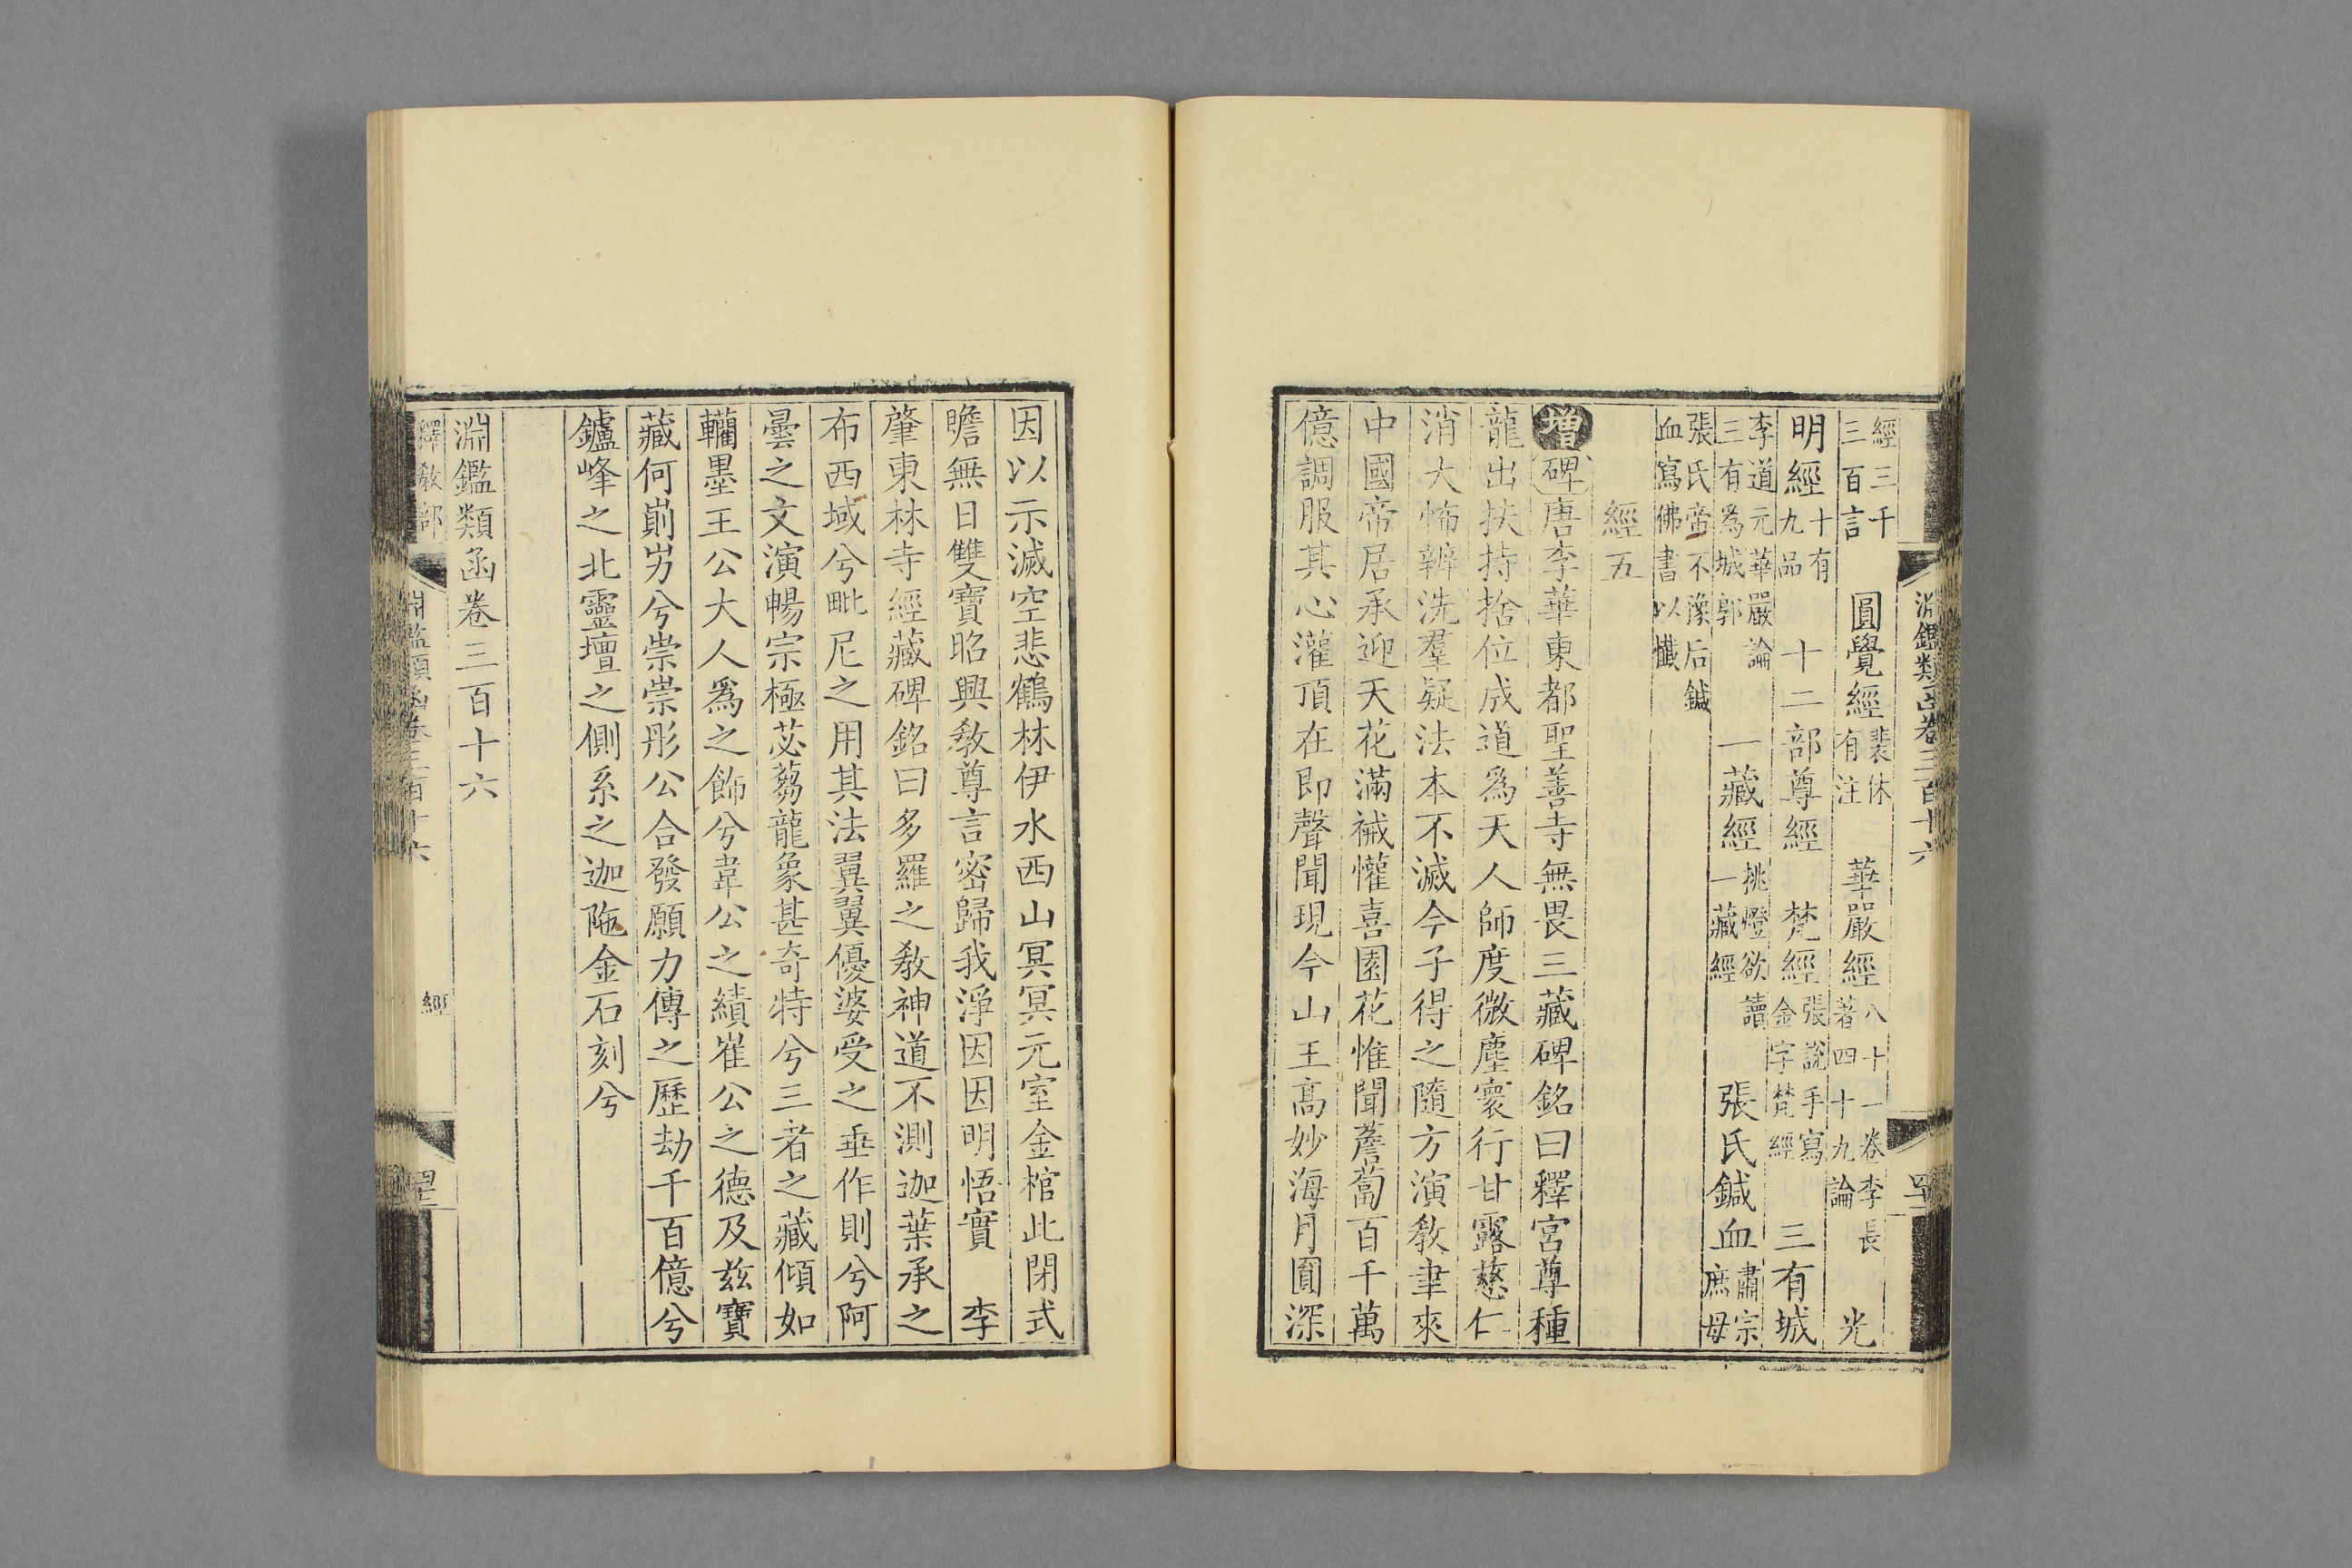 淵鑑類函卷三百十六
經三千三百言 圓覺經裴休有注 華嚴經八十一卷李長著四十九論 光
明經十有九品 十二部尊經 梵經張說手寫金字梵經 三有城
李道元華嚴論三有爲城郭 一藏經挑燈欲讀一藏經 張氏鍼血肅宗庶母
張氏帝不豫后鍼血寫佛書以懺
經五
增碑唐李華東都聖善寺無畏三藏碑銘曰釋宮尊種
龍出扶持捨位成道爲天人師度微塵寰行甘露慈仁
消大怖辨洗羣疑法本不滅今子得之隨方演敎聿來
中國帝居承迎天花滿裓懽喜園花惟聞薝蔔百千萬
億調服其心灌頂在即聲聞現今山王高妙海月圓深
因以示滅空悲鶴林伊水西山冥冥元室金棺此閉式
瞻無日雙寶昭興敎尊言密歸我淨因因明悟實 李
肇東林寺經藏碑銘曰多羅之敎神道不測迦葉承之
布西域兮毗尼之用其法翼翼優婆受之垂作則兮阿
曇之文演暢宗極苾蒭龍象甚奇特兮三者之藏傾如
轥墨王公大人爲之飾兮韋公之績崔公之德及茲寶
藏何崱屴兮崇崇彤公合發願力傳之歷劫千百億兮
鑪峰之北靈壇之側系之迦陁金石刻兮
淵鑑類函卷三百十六
釋敎部 淵鑑類函卷三百十六 經